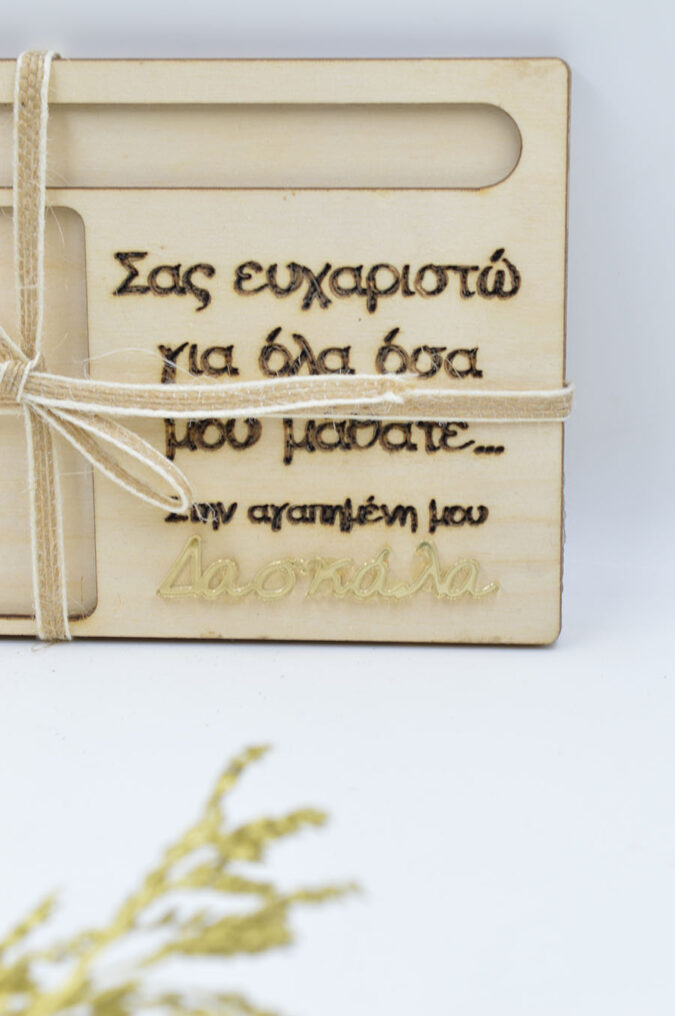 Σας ευχαριστώ
για όλα όσα
μου μάθατε...
Στην αγαπημένη μου
Δασκάλα